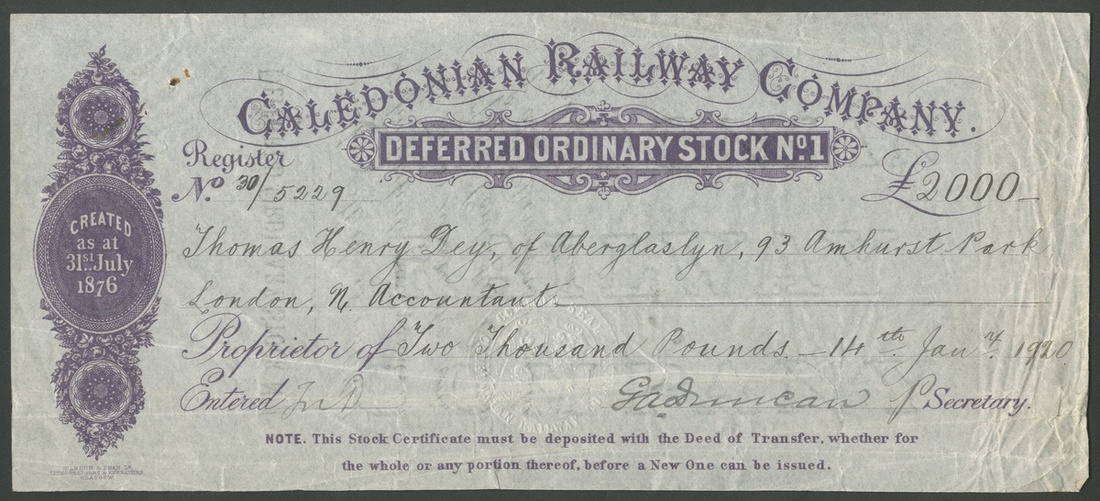 CALEDONIAN RAILWAY COMPANY.
DEFERRED ORDINARY STOCK No. 1
Register
No. 30/5229
£2000
CREATED
as at
31st July
1876
Thomas Henry Dey, of Aberglaslyn, 93 Amhurst Park
London, N. Accountant
Proprietor of Two Thousand Pounds — 14th Jany. 1920
Entered
GADuncan p Secretary.
NOTE. This Stock Certificate must be deposited with the Deed of Transfer, whether for
the whole or any portion thereof, before a New One can be issued.
GLASGOW